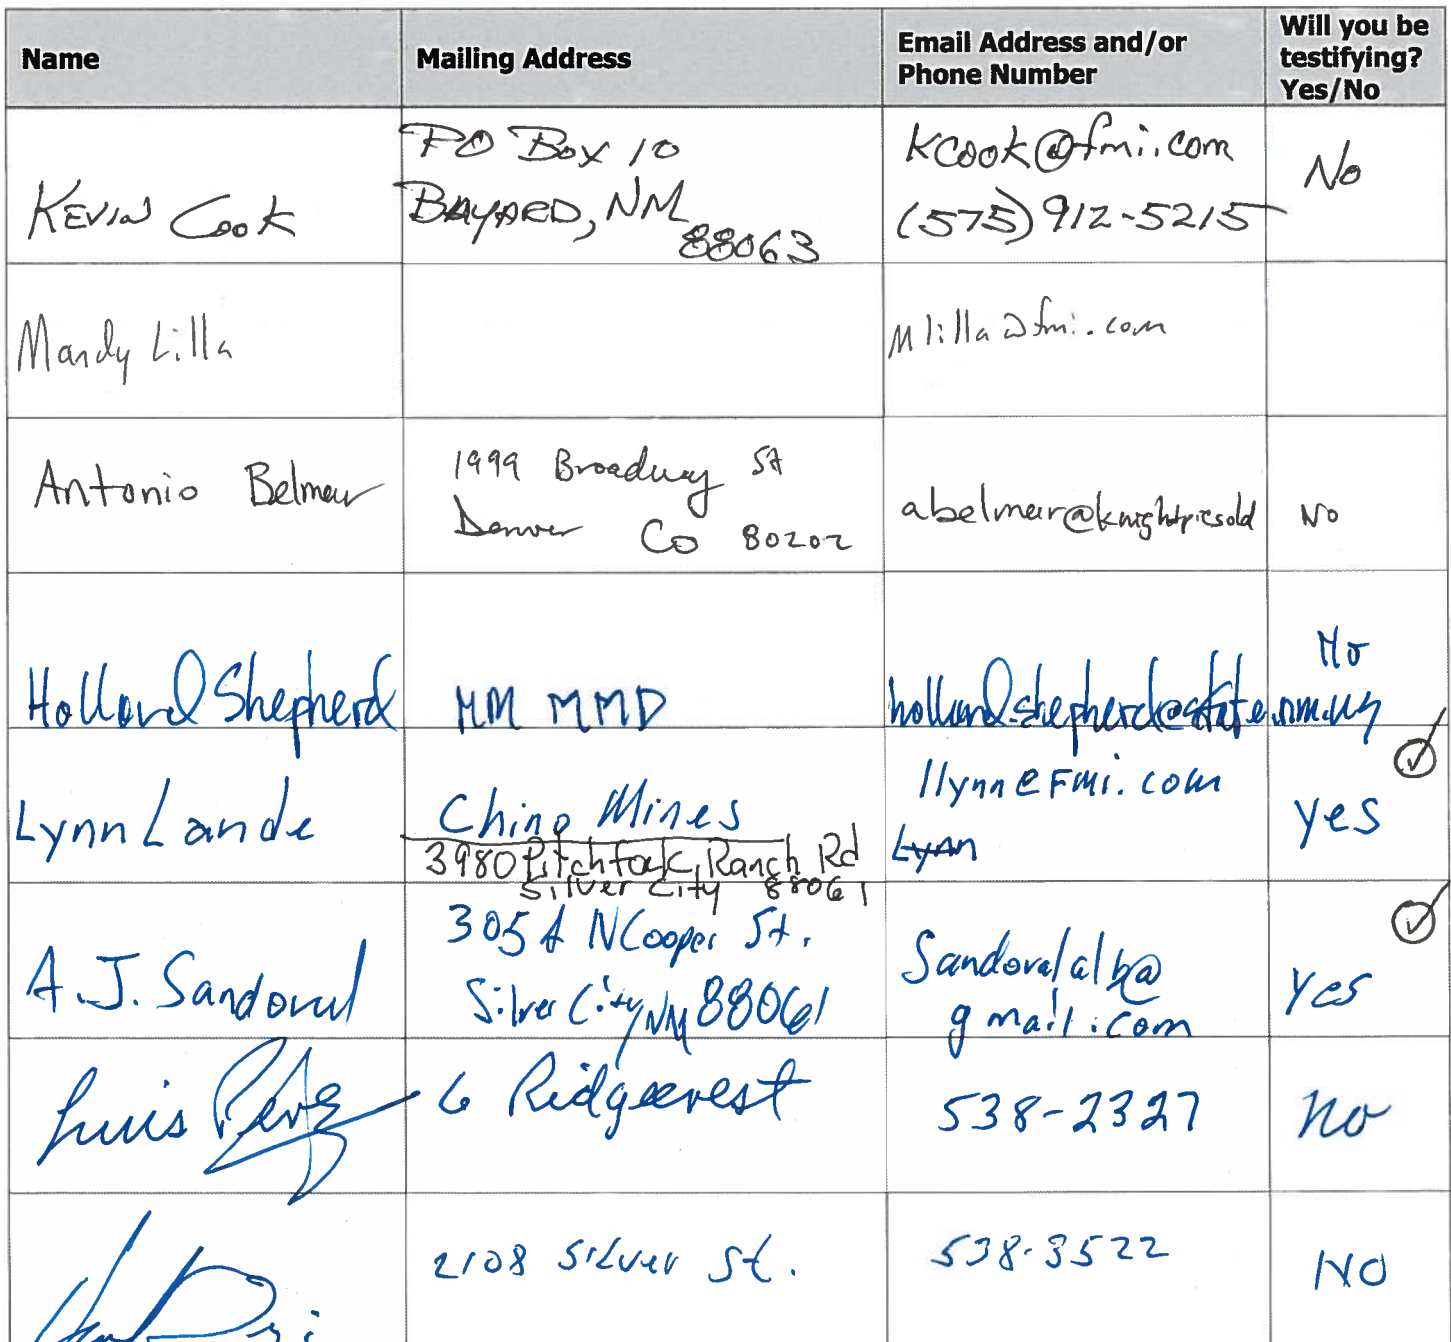 Name
Mailing Address
Email Address and/or
Phone Number
Will you be
testifying?
Yes/No
Kevin Cook
PO Box 10
Bayard, NM
88063
kcook@fmi.com
(575) 912-5215
No
Mandy Lilla
mlilla@fmi.com
Antonio Belmar
1999 Broadway St
Denver Co 80202
abelmar@knightpiesold
No
Holland Shepherd
NM MMD
holland.shepherd@state.nm.us
No
Lynn Lande
Chino Mines
3980 Pitchfork Ranch Rd
Silver City 88061
llynn@Fmi.com
Lynn
yes
A.J. Sandoval
305 A N Cooper St.
Silver City, NM 88061
Sandovalalb@
gmail.com
yes
Luis Perez
6 Ridgecrest
538-2327
no
2108 Silver St.
538-3522
NO